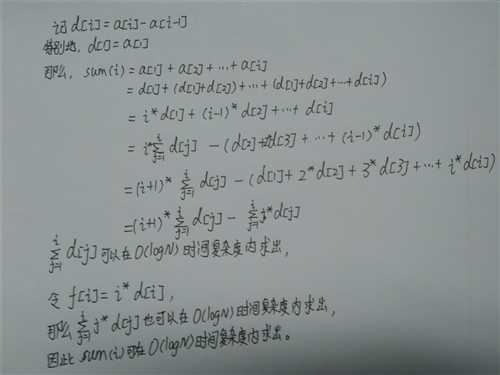 记 d[i] = a[i] - a[i-1]
特别地, d[1] = a[1]
那么, sum(i) = a[1] + a[2] + ... + a[i]
= d[1] + (d[1]+d[2]) + ... + (d[1]+d[2]+...+d[i])
= i*d[1] + (i-1)*d[2] + ... + d[i]
= i*∑_{j=1}^{i} d[j] - (d[2]+2*d[3] + ... + (i-1)*d[i])
= (i+1)* ∑_{j=1}^{i} d[j] - (d[1] + 2*d[2] + 3*d[3] + ... + i*d[i])
= (i+1)* ∑_{j=1}^{i} d[j] - ∑_{j=1}^{i} j*d[j]
∑_{j=1}^{i} d[j] 可以在 O(logN) 时间复杂度内求出,
令 f[i] = i*d[i],
那么 ∑_{j=1}^{i} j*d[j] 也可以在 O(logN) 时间复杂度内求出,
因此 sum(i) 可在 O(logN) 时间复杂度内求出。